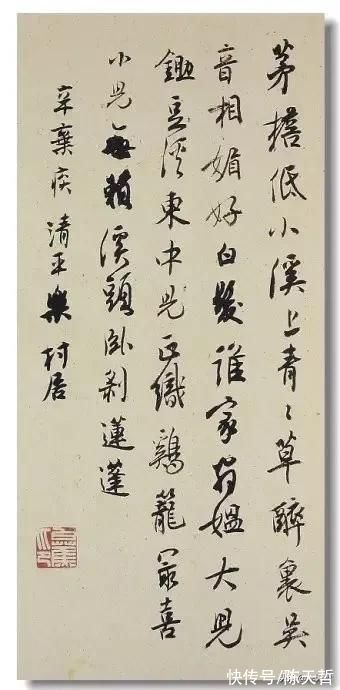 茅檐低小溪上青〻草醉裏吴
音相媚好白髮誰家翁媪大兒
鋤豆溪東中兒正織鷄籠最喜
小兒無賴溪頭卧剥蓮蓬
辛棄疾 清平樂 村居
快传号/陈天哲